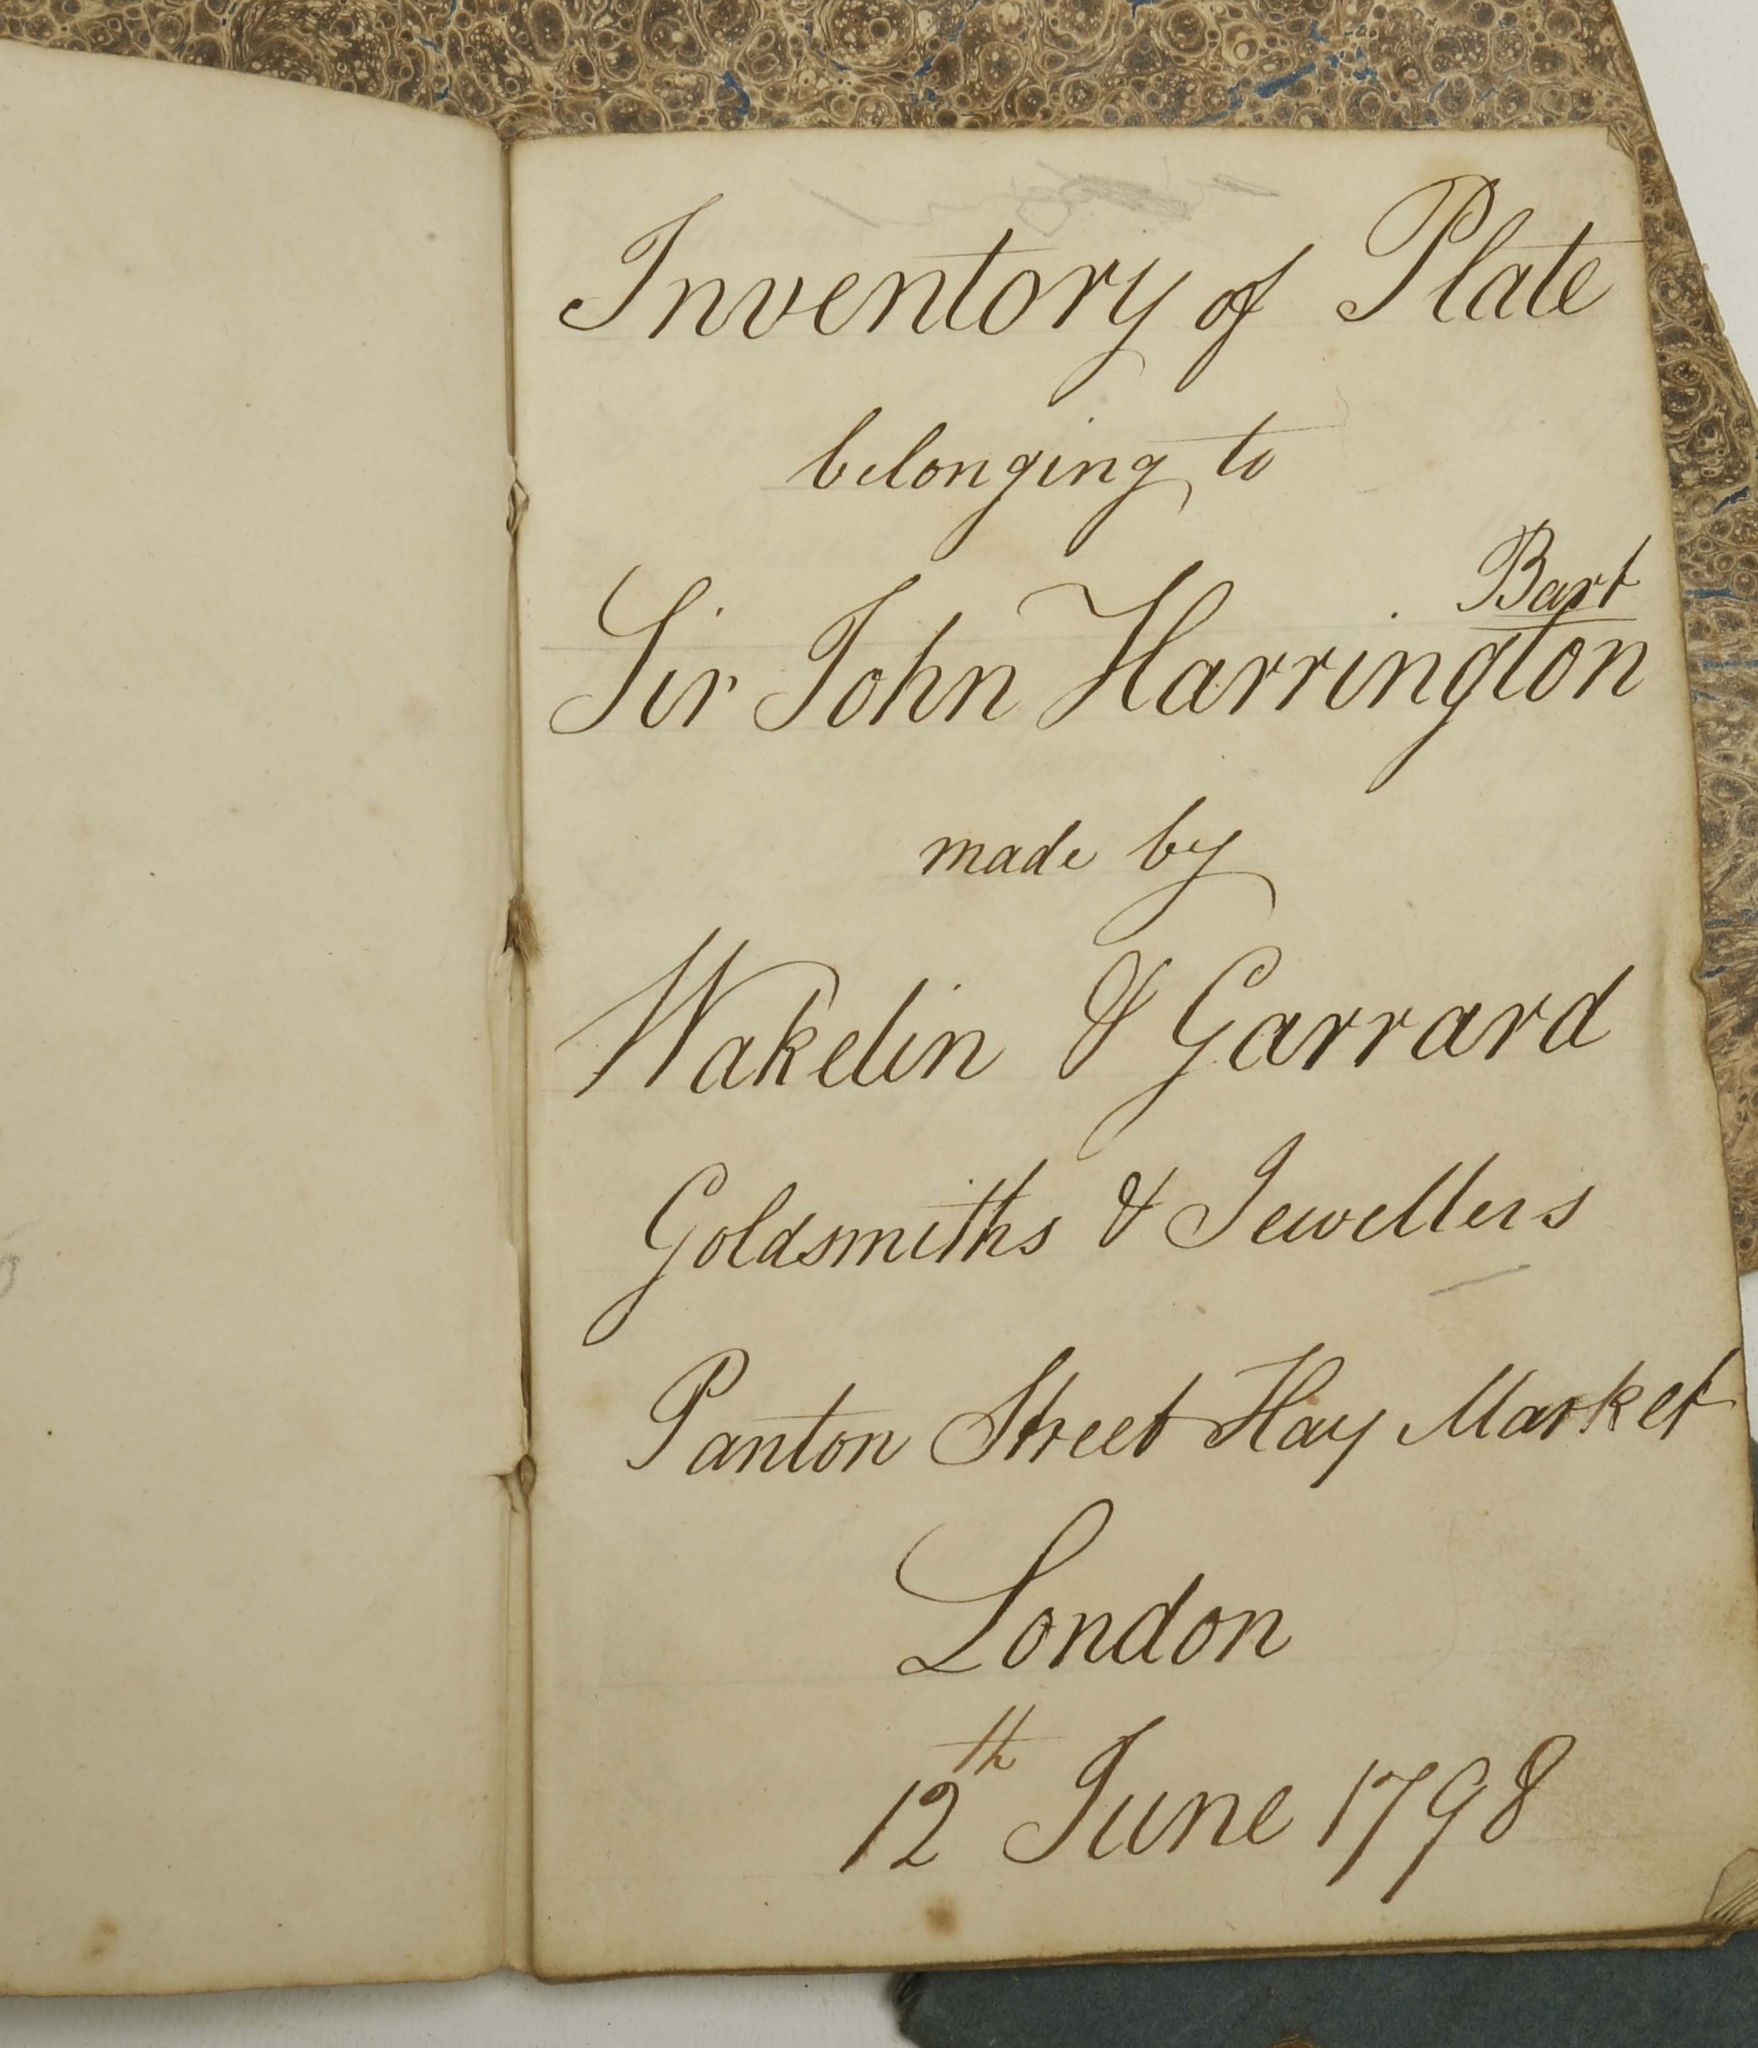 Inventory of Plate
belonging to
Bart
Sir John Harrington
made by
Wakelin & Garrard
Goldsmiths & Jewellers
Panton Street Hay Market
London
12th June 1798